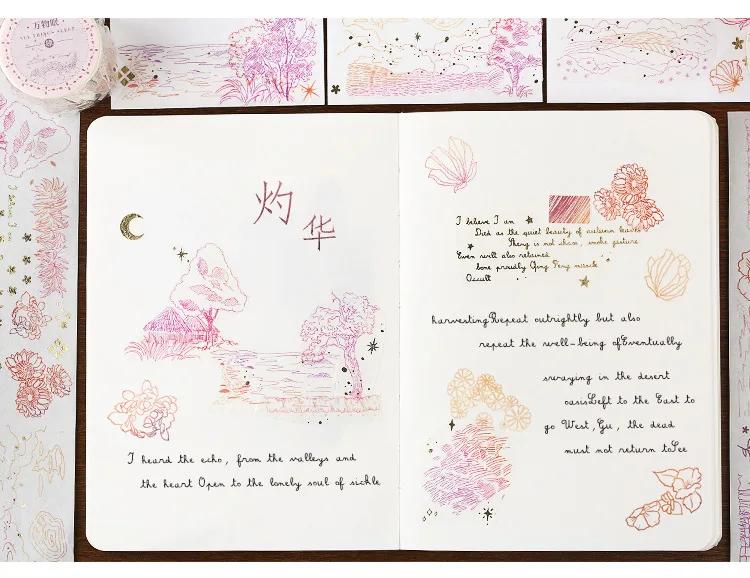 ·万物眠·
ALL THINGS SLEEP
灼
华
I heard the echo, from the valleys and
the heart Open to the lonely soul of sickle
I believe I am
Died as the quiet beauty of autumn leaves
Sheng is not chaos, smoke gesture
Even wilt also retained
bone proudly Qing Feng muscle
Occult
harvestingRepeat outrightly but also
repeat the well-being ofEventually
swaying in the desert
oasisLeft to the East to
go West, Gu, the dead
must not return toSee